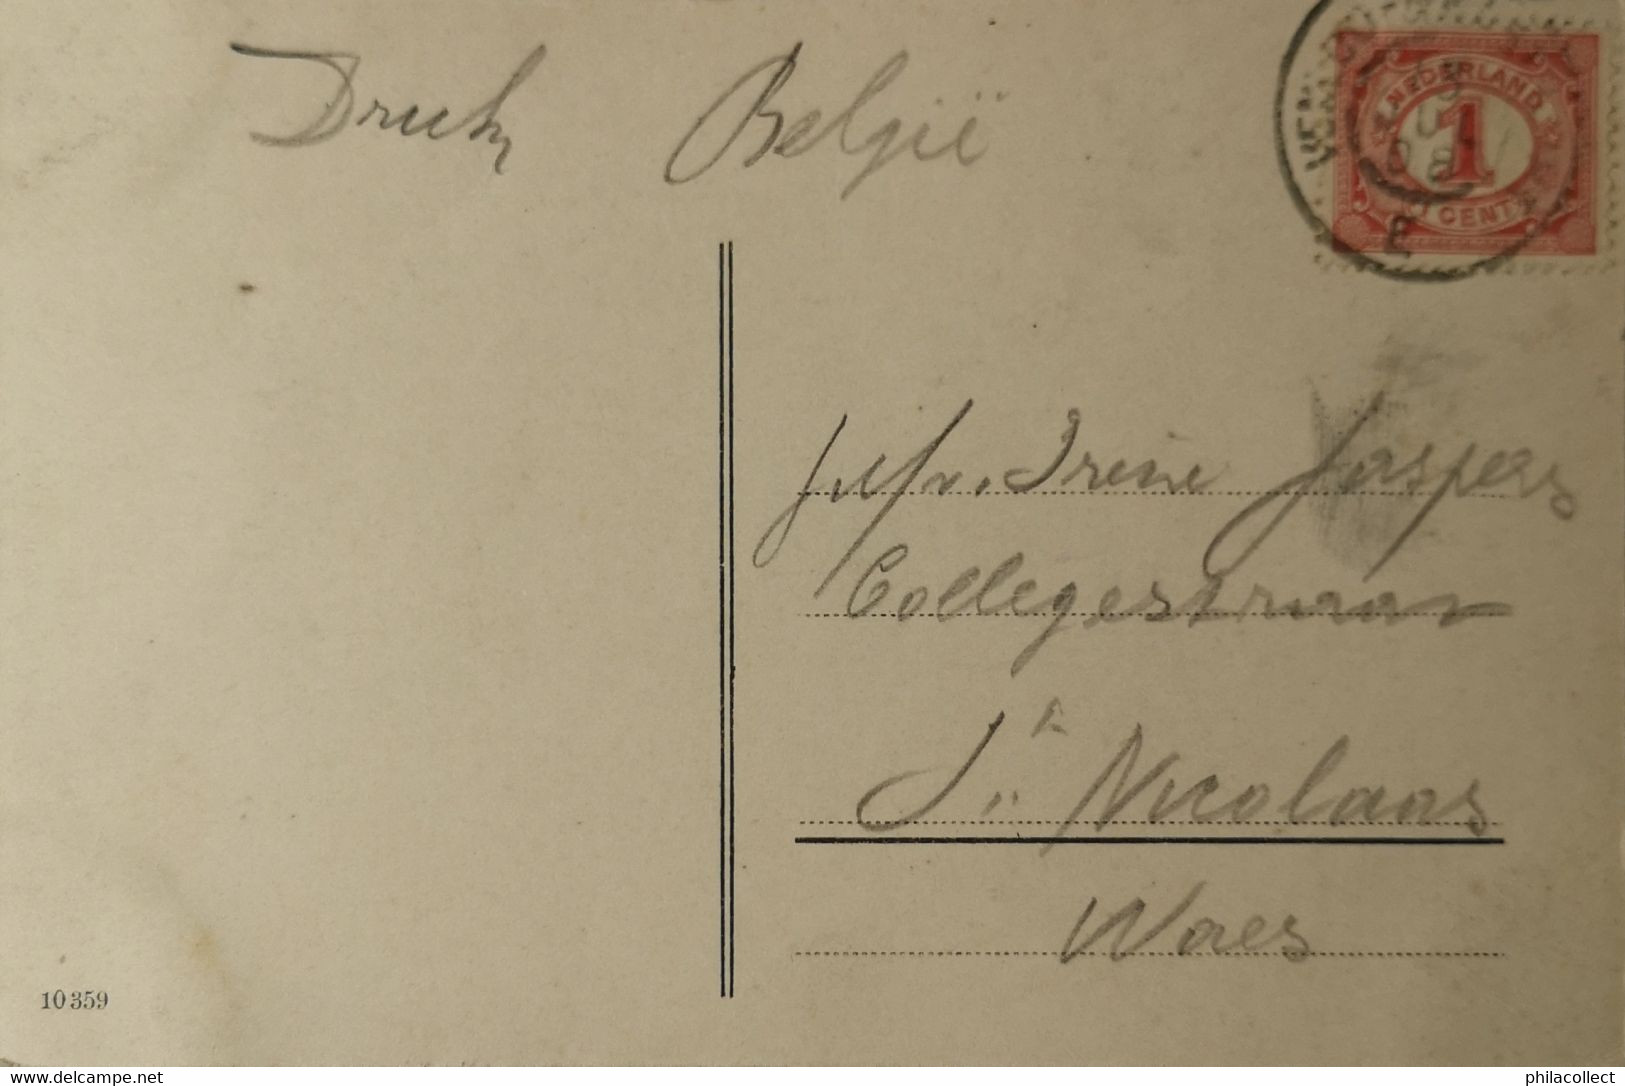 Drukw België
NEDERLAND
1
1 CENT
08
E
Mej. Irene Jaspers
Collegestraat
St Nicolaas
Waes
10359
delcampe.net
philacollect